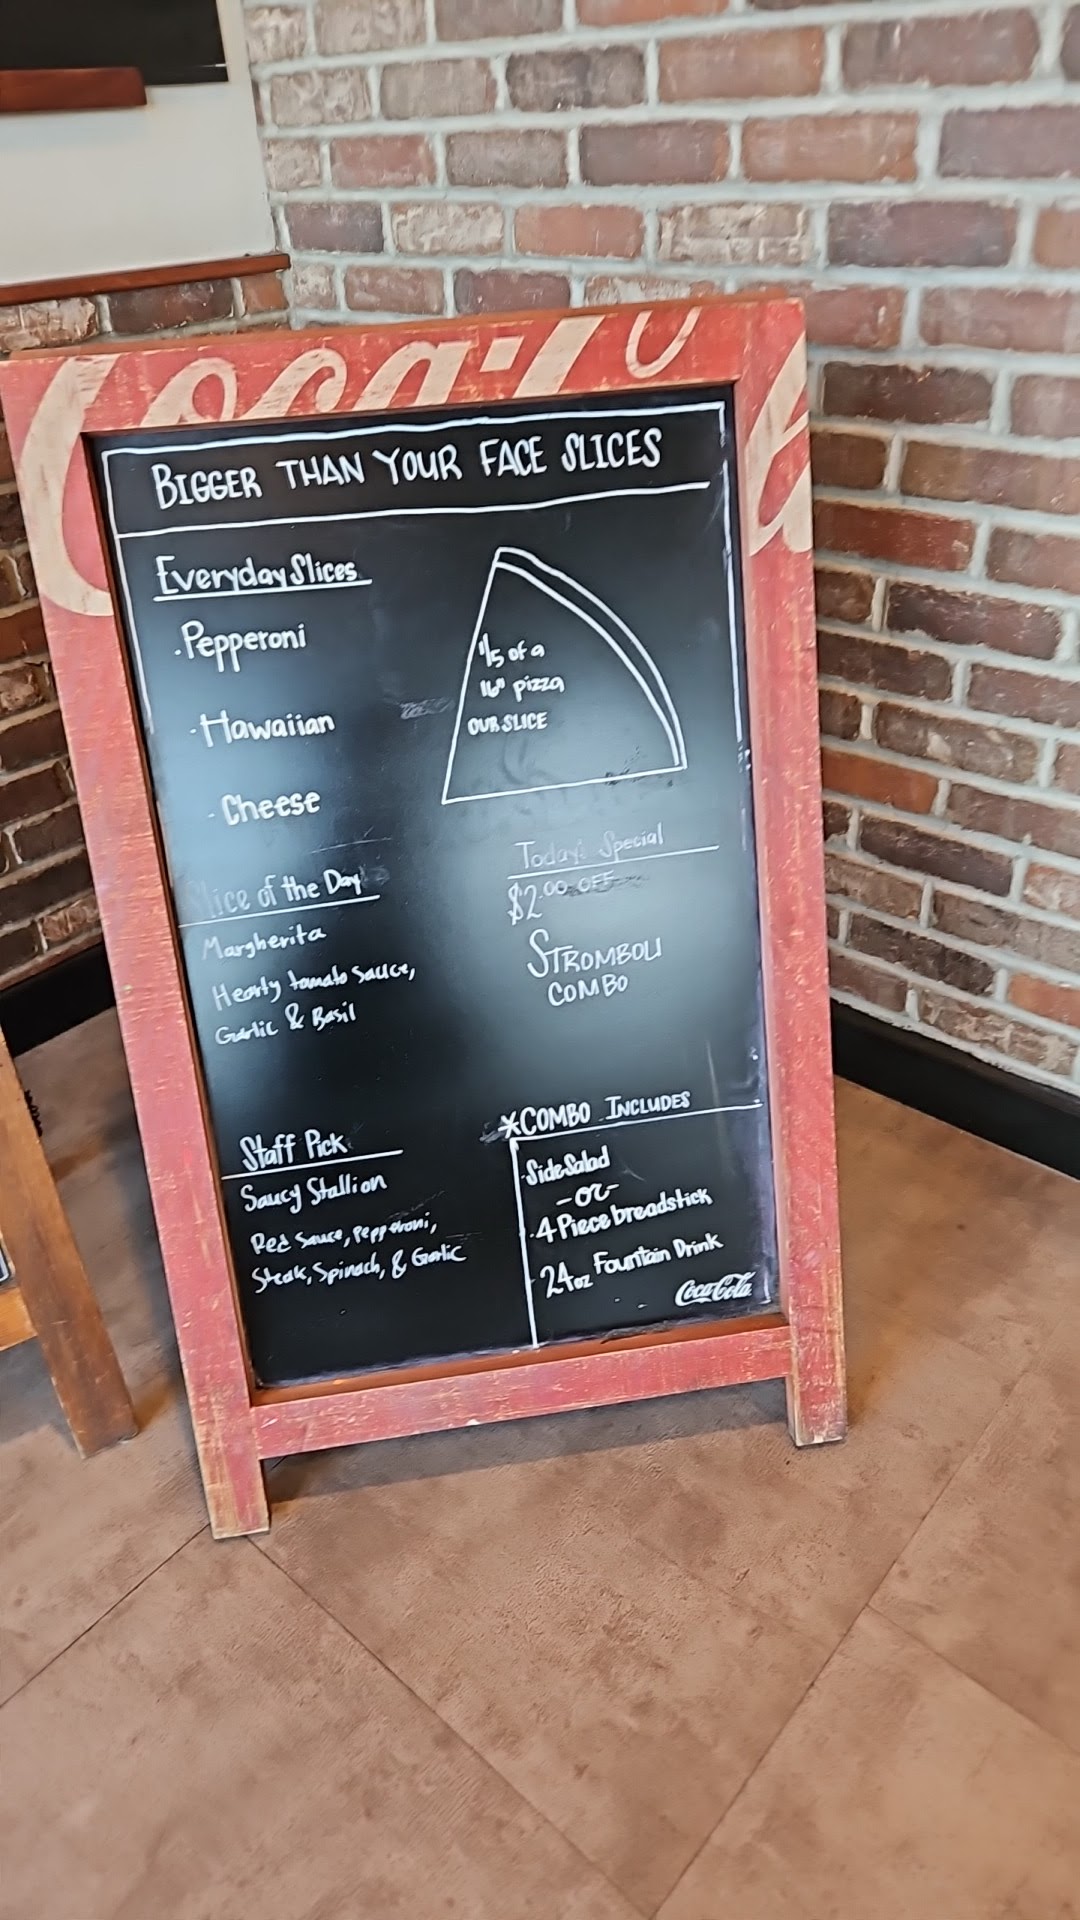 Coca-Co
BIGGER THAN YOUR FACE SLICES
Everyday Slices
· Pepperoni
· Hawaiian
· Cheese
1/5 of a
16" pizza
OUR SLICE
Slice of the Day
Margherita
Hearty tomato sauce,
Garlic & Basil
Today! Special
$2.00 OFF
STROMBOLI
COMBO
Staff Pick
Saucy Stallion
Red Sauce, Pepperoni,
Steak, Spinach, & Garlic
*COMBO INCLUDES
· Side Salad
-or-
· 4 Piece breadstick
· 24oz Fountain Drink
Coca-Cola